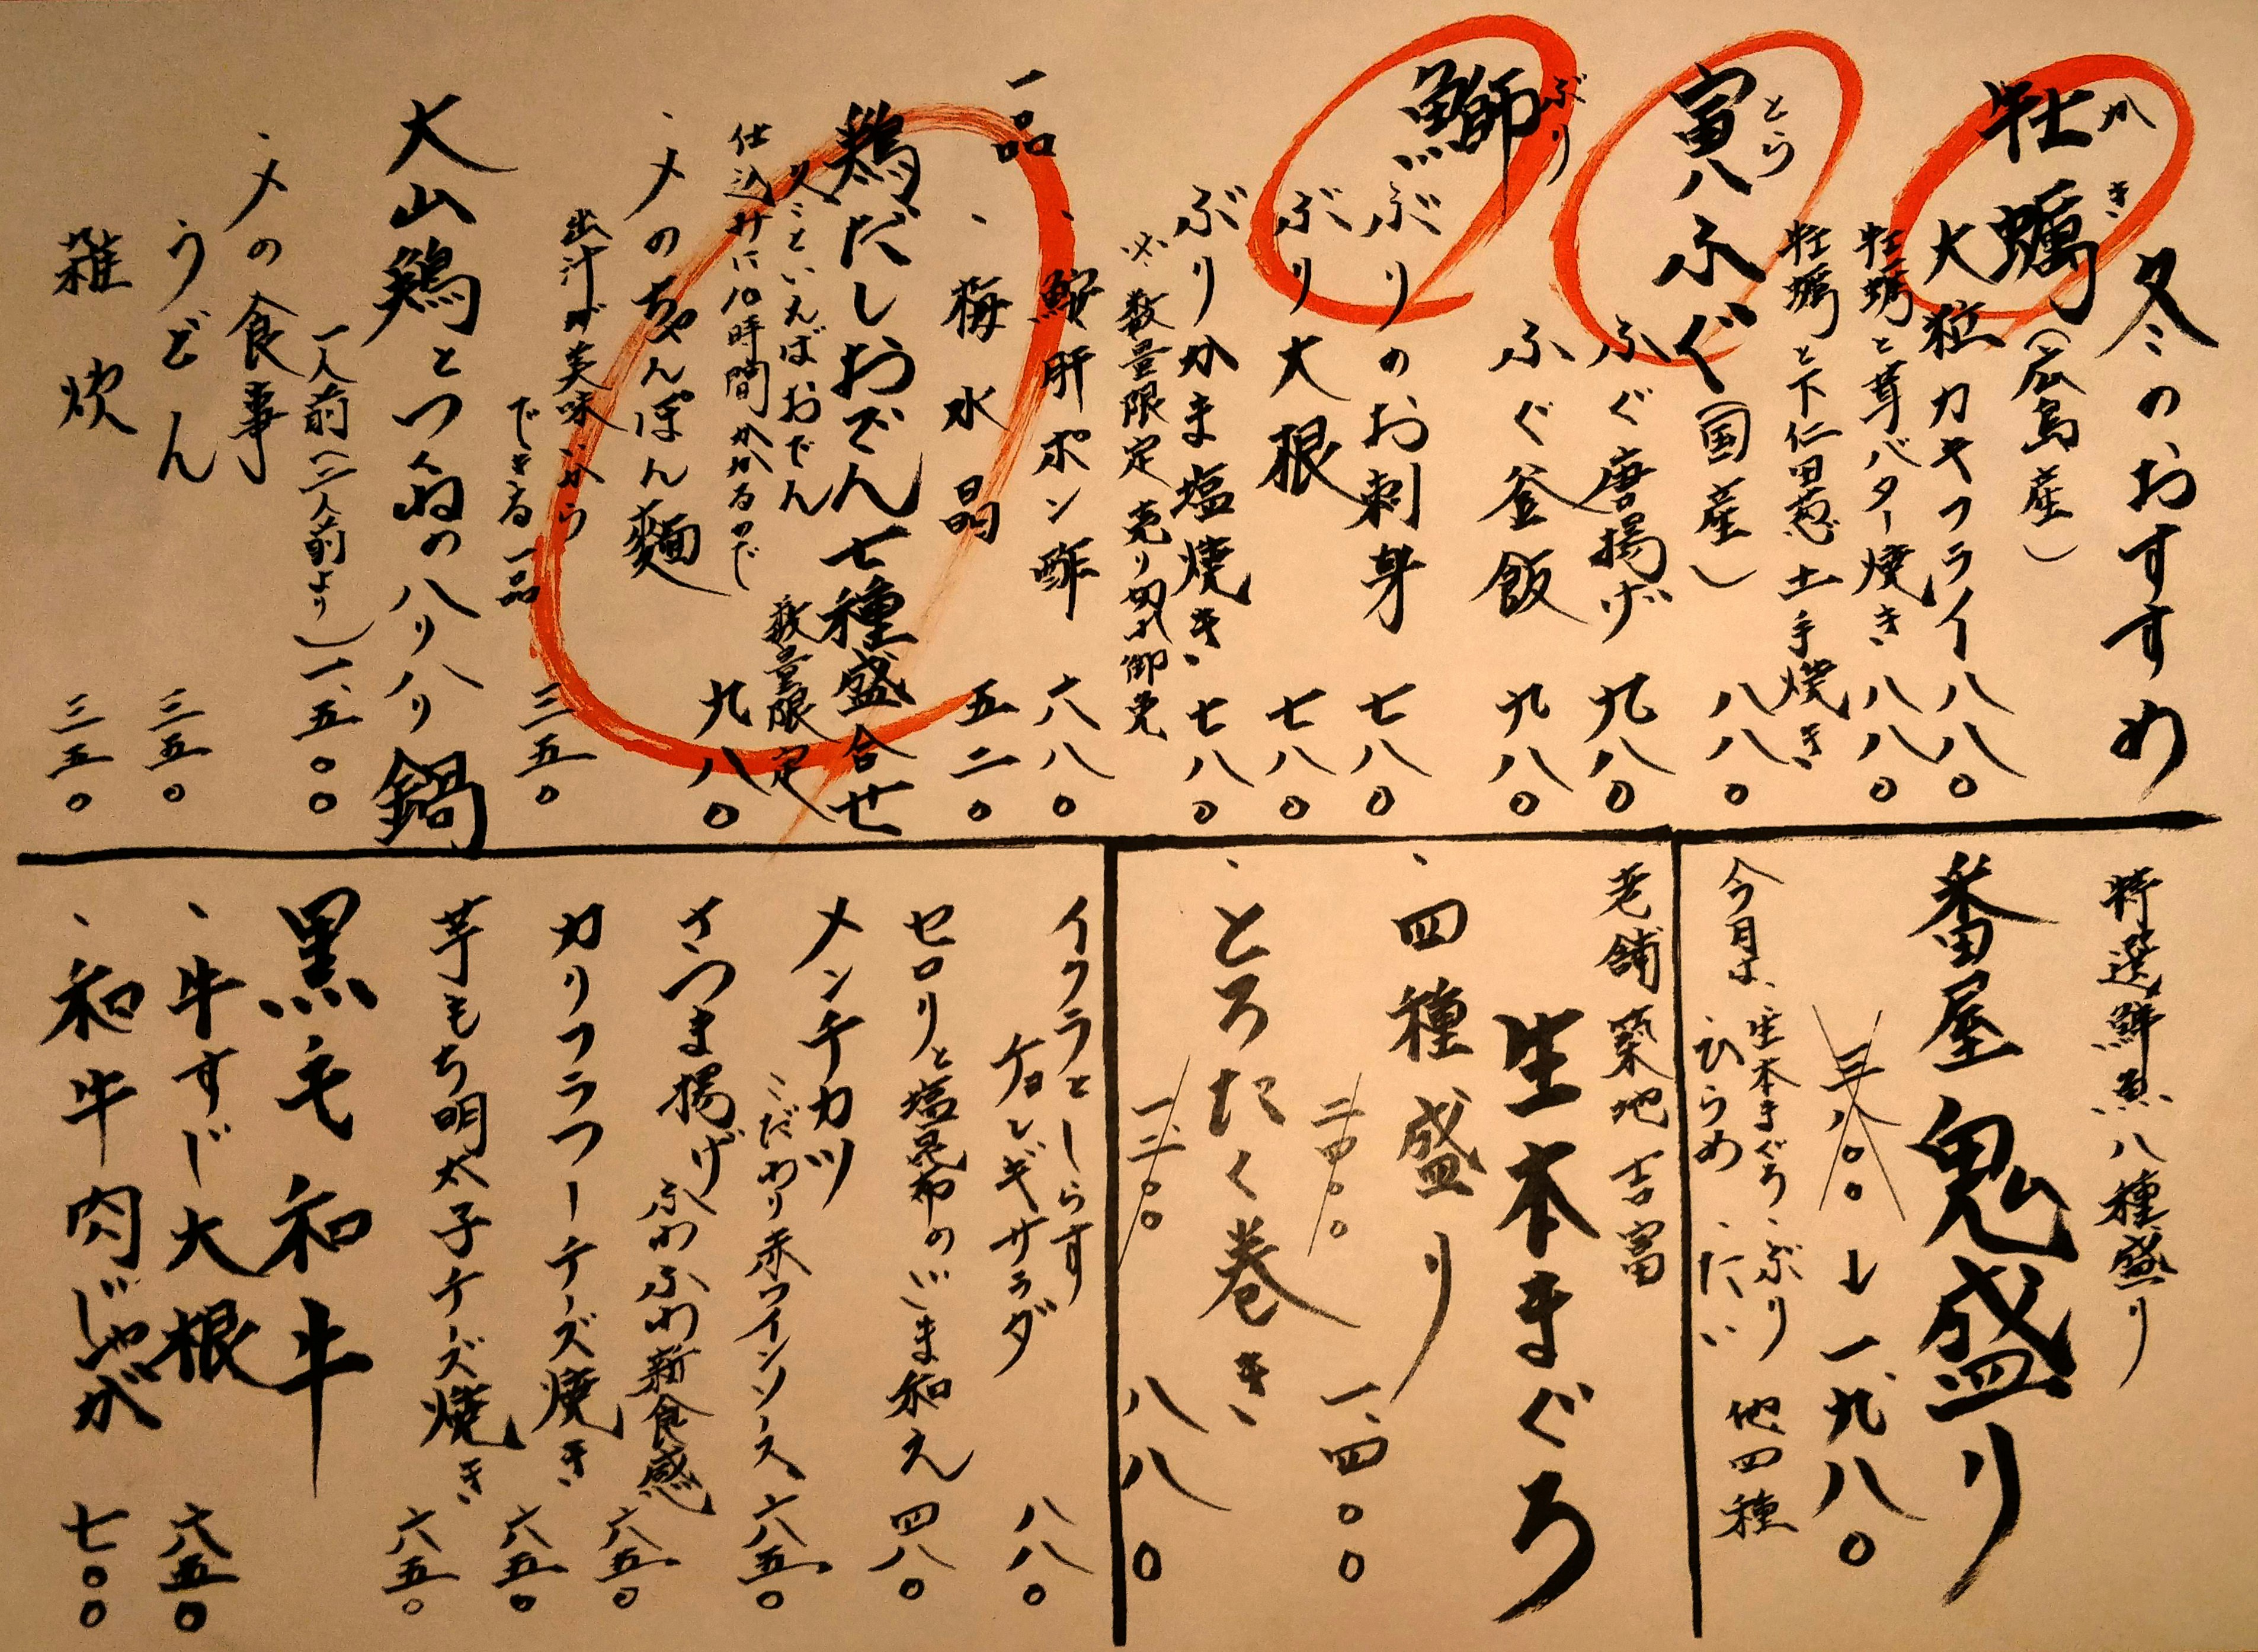 冬のおすすめ
牡蠣（広島産）
かき
大粒カキフライ 八八〇
牡蠣と茸バター焼き 八八〇
牡蠣と下仁田葱土手焼き 八八〇
寅八ふぐ（国産）
とら
ふぐ唐揚げ 九八〇
ふぐ釜飯 九八〇
鰤
ぶり
ぶりのお刺身 七八〇
ぶり大根 七八〇
ぶりかま塩焼き 七八〇
※数量限定 売り切れ御免
一品
、鮟肝ポン酢 六八〇
、梅水晶 五二〇
鶏だしおでん七種盛合せ
冬といえばおでん 数量限定
仕込みに10時間かかるので 九八〇
、〆のちゃんぽん麺
出汁が美味いから
できる一品 三五〇
大山鶏とつくねのハリハリ鍋
一人前（二人前より）一、五〇〇
、〆の食事
うどん 三五〇
雑炊 三五〇
特選鮮魚八種盛り
番屋鬼盛り
三八〇〇→一、九八〇
今月は、生本まぐろ、ぶり
、ひらめ、たい 他四種
老舗築地吉富
生本まぐろ
、四種盛り
二四〇〇 一、四〇〇
、とろたく巻き
一二〇〇 八八〇
イクラとしらす
チョレギサラダ 八八〇
セロリと塩昆布のごま和え 四八〇
メンチカツ こだわり赤ワインソース 六五〇
さつま揚げ ふわふわ新食感 六五〇
カリフラワーチーズ焼き 六五〇
芋もち明太子チーズ焼き 六五〇
黒毛和牛
、牛すじ大根 六五〇
、和牛肉じゃが 七〇〇